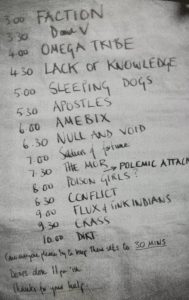 3.00 FACTION
3.30 Dan V
4.00 OMEGA TRIBE
4.30 LACK OF KNOWLEDGE
5.00 SLEEPING DOGS
5.30 APOSTLES
6.00 AMEBIX
6.30 NULL AND VOID
7.00 Soldiers of fortune
7.30 THE MOB → POLEMIC ATTACK
8.00 POISON GIRLS?
8.30 CONFLICT
9.00 FLUX of PINK INDIANS
9.30 CRASS
10.00 DIRT
Can everyone please try to keep there sets to 30 MINS
Doors close 11 pm
Thanks for your help